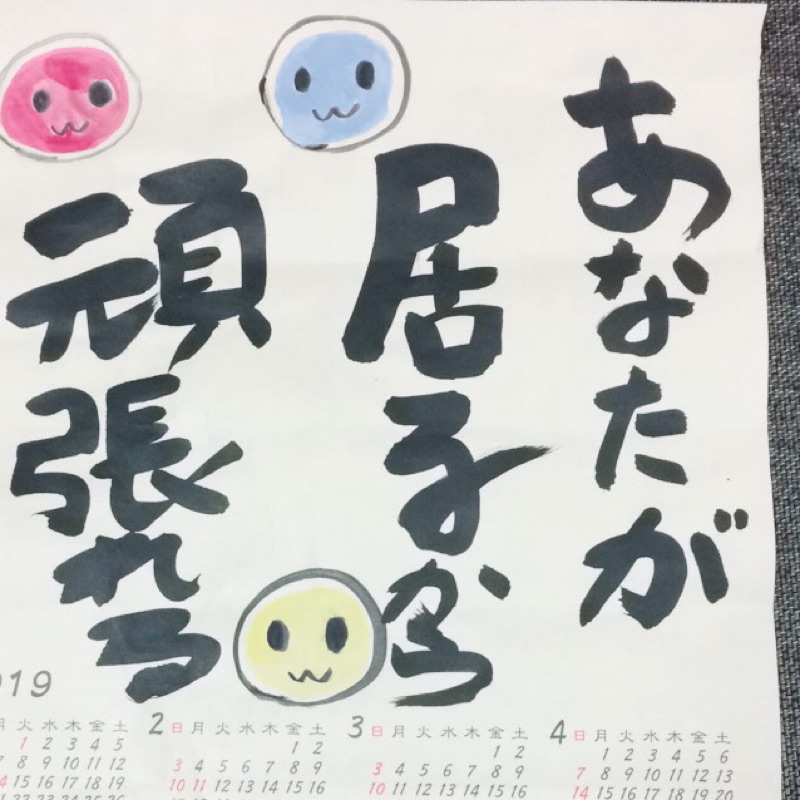 あなたが
居子から
頑張れる
019
月 火 水 木 金 土
1 2 3 4 5
7 8 9 10 11 12
14 15 16 17 18 19
2
日 月 火 水 木 金 土
1 2
3 4 5 6 7 8 9
10 11 12 13 14 15 16
3
日 月 火 水 木 金 土
1 2
3 4 5 6 7 8 9
10 11 12 13 14 15 16
4
日 月 火 水 木 金 土
1 2 3 4 5 6
7 8 9 10 11 12 13
14 15 16 17 18 19 20